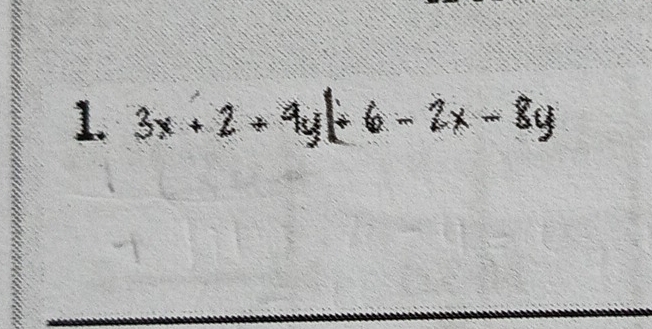 1. 3x + 2 + 9y + 6 - 2x - 8y